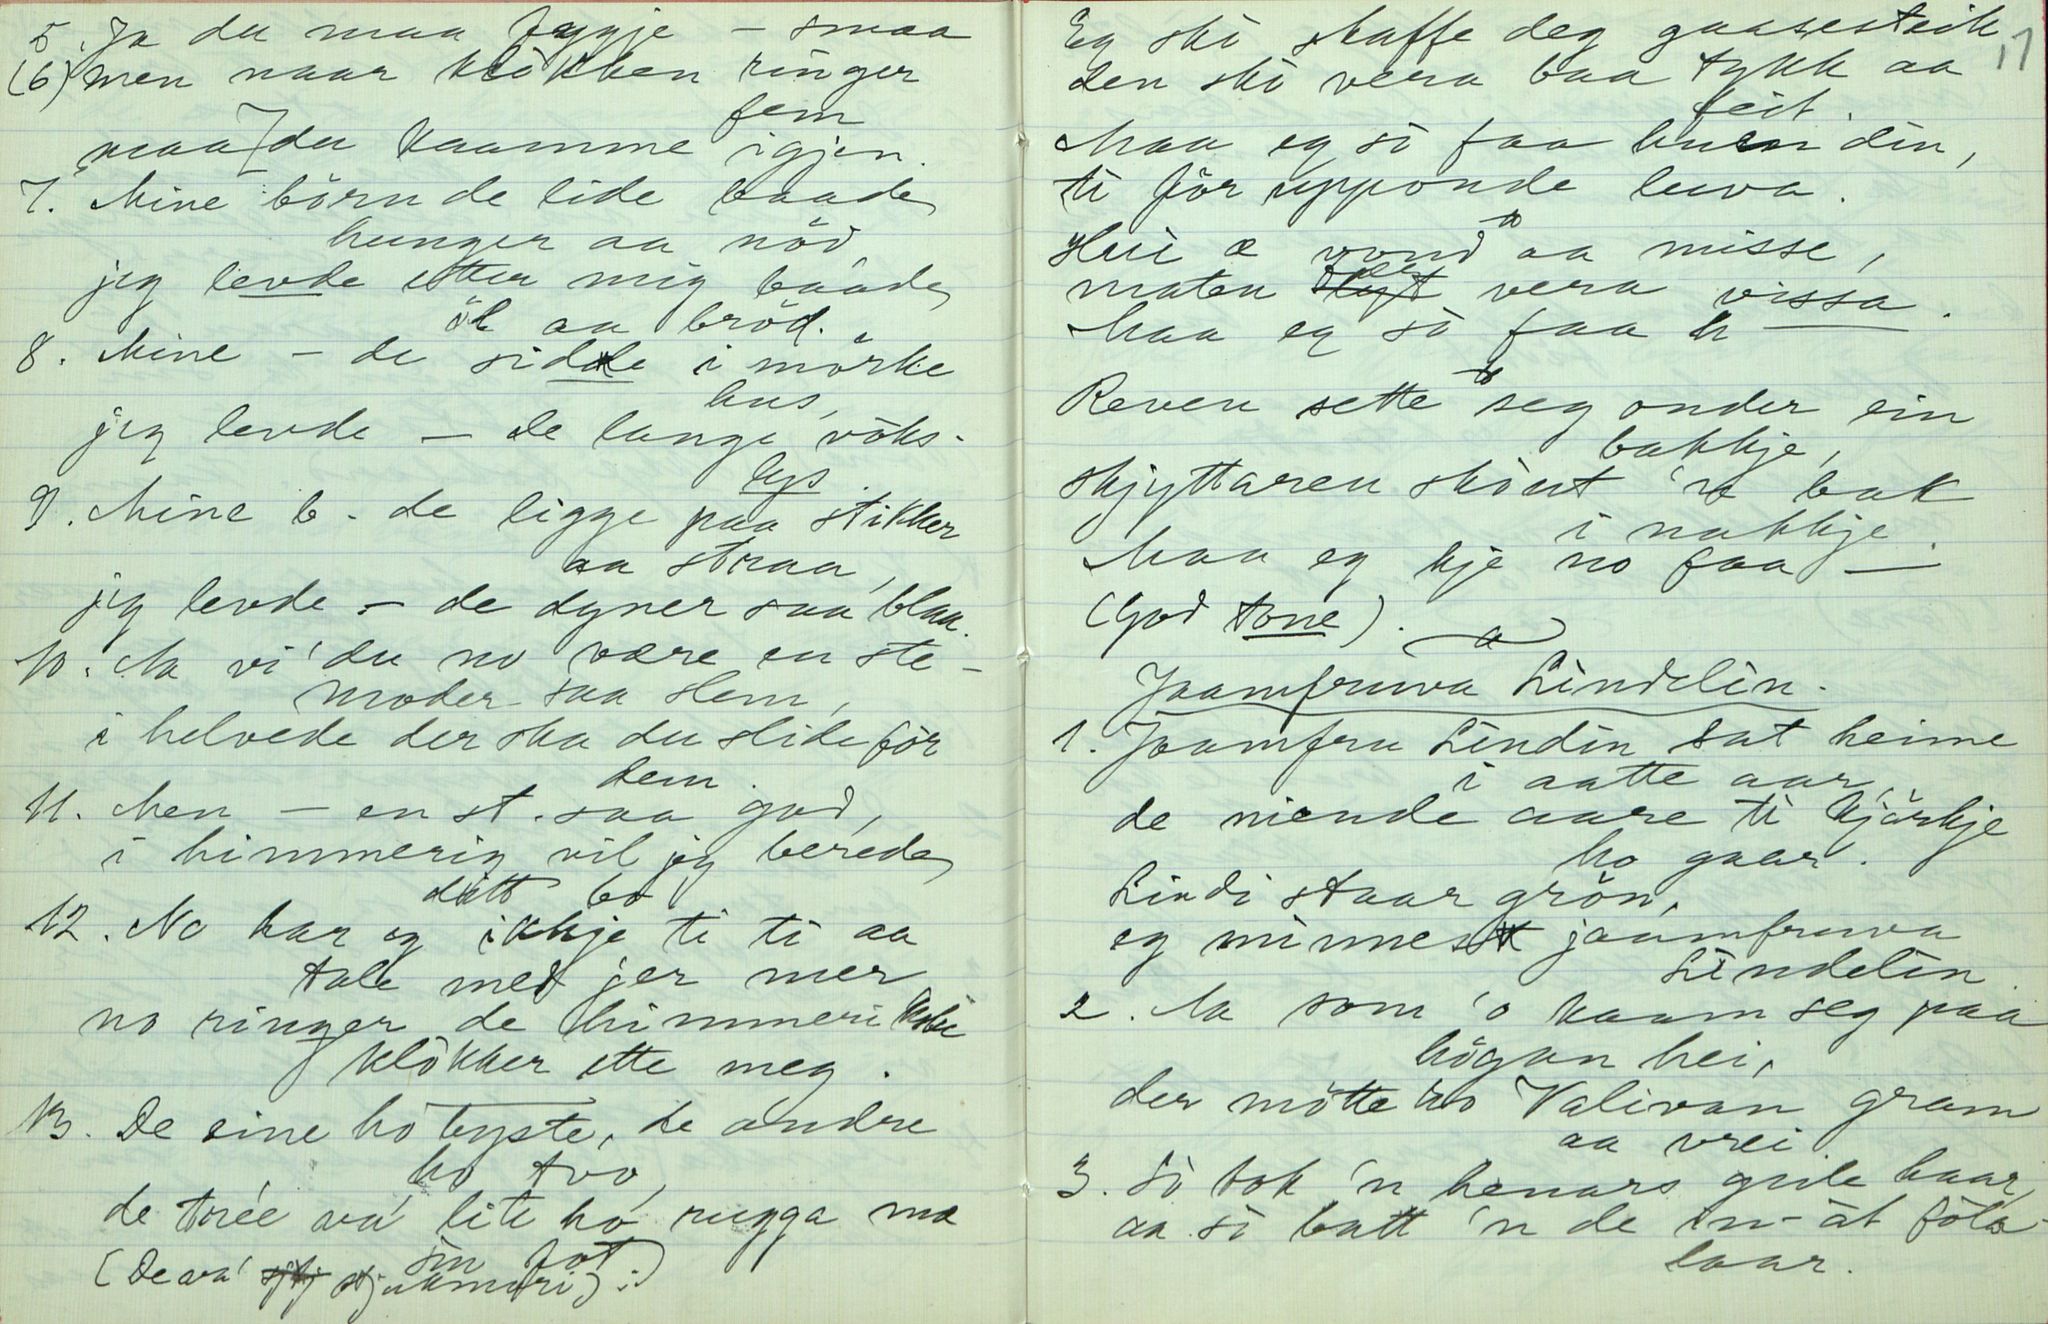 5. Ja du maa fyggje – smaa
(6) men naar klokken ringer
fem
maa du kaamme igjen.
7. Mine börn de lide baade
hunger aa nöd,
jeg levde etter mig baade
öl aa bröd.
8. Mine – de sidde i mörke
hus,
jeg levde – de lange voks-
lys.
9. Mine b – de ligge paa stikker
aa straa,
jeg levde – de dyner saa blaa.
10. Aa vi' du no være en ste-
moder saa slem,
i helvede der ska du slide för
dem.
11. Men – en st. saa god,
i himmerig vil jeg berede
ditt bo
12. No har eg ikkje ti ti aa
tale med jer mer
no ringer de himmeri
klökker ette meg.
13. De eine ho byste, de andre
ho tvo,
de trée va' lite ho rugga mæ
sin fot
(De va' stjukmori) :)
17
Eg ski skaffe deg gaasesteik
den ski vera baa tykk aa
feit.
Maa eg so faa huen din,
ti för upponde luva.
Hui æ vond aa misse,
maten vera vissa.
Maa eg so faa h —
Reven sette seg onder ein
bakkje,
skjyttaren sköut 'n bak
i nakkje.
Maa eg kje no faa —
(God tone).
Jaamfruva Lindelin.
1. Jaamfru Lindin sat heime
i aatte aar,
de niende aare ti kjärkje
ho gaar.
Lindi staar grön,
eg minnest jaamfruva
Lindelin
2. Aa som 'o kaam seg paa
högan hei,
der mötte ho Valivan gram
aa vrei
3. So tok 'n henars gule haar,
aa so batt 'n de in-åt föla-
laar.